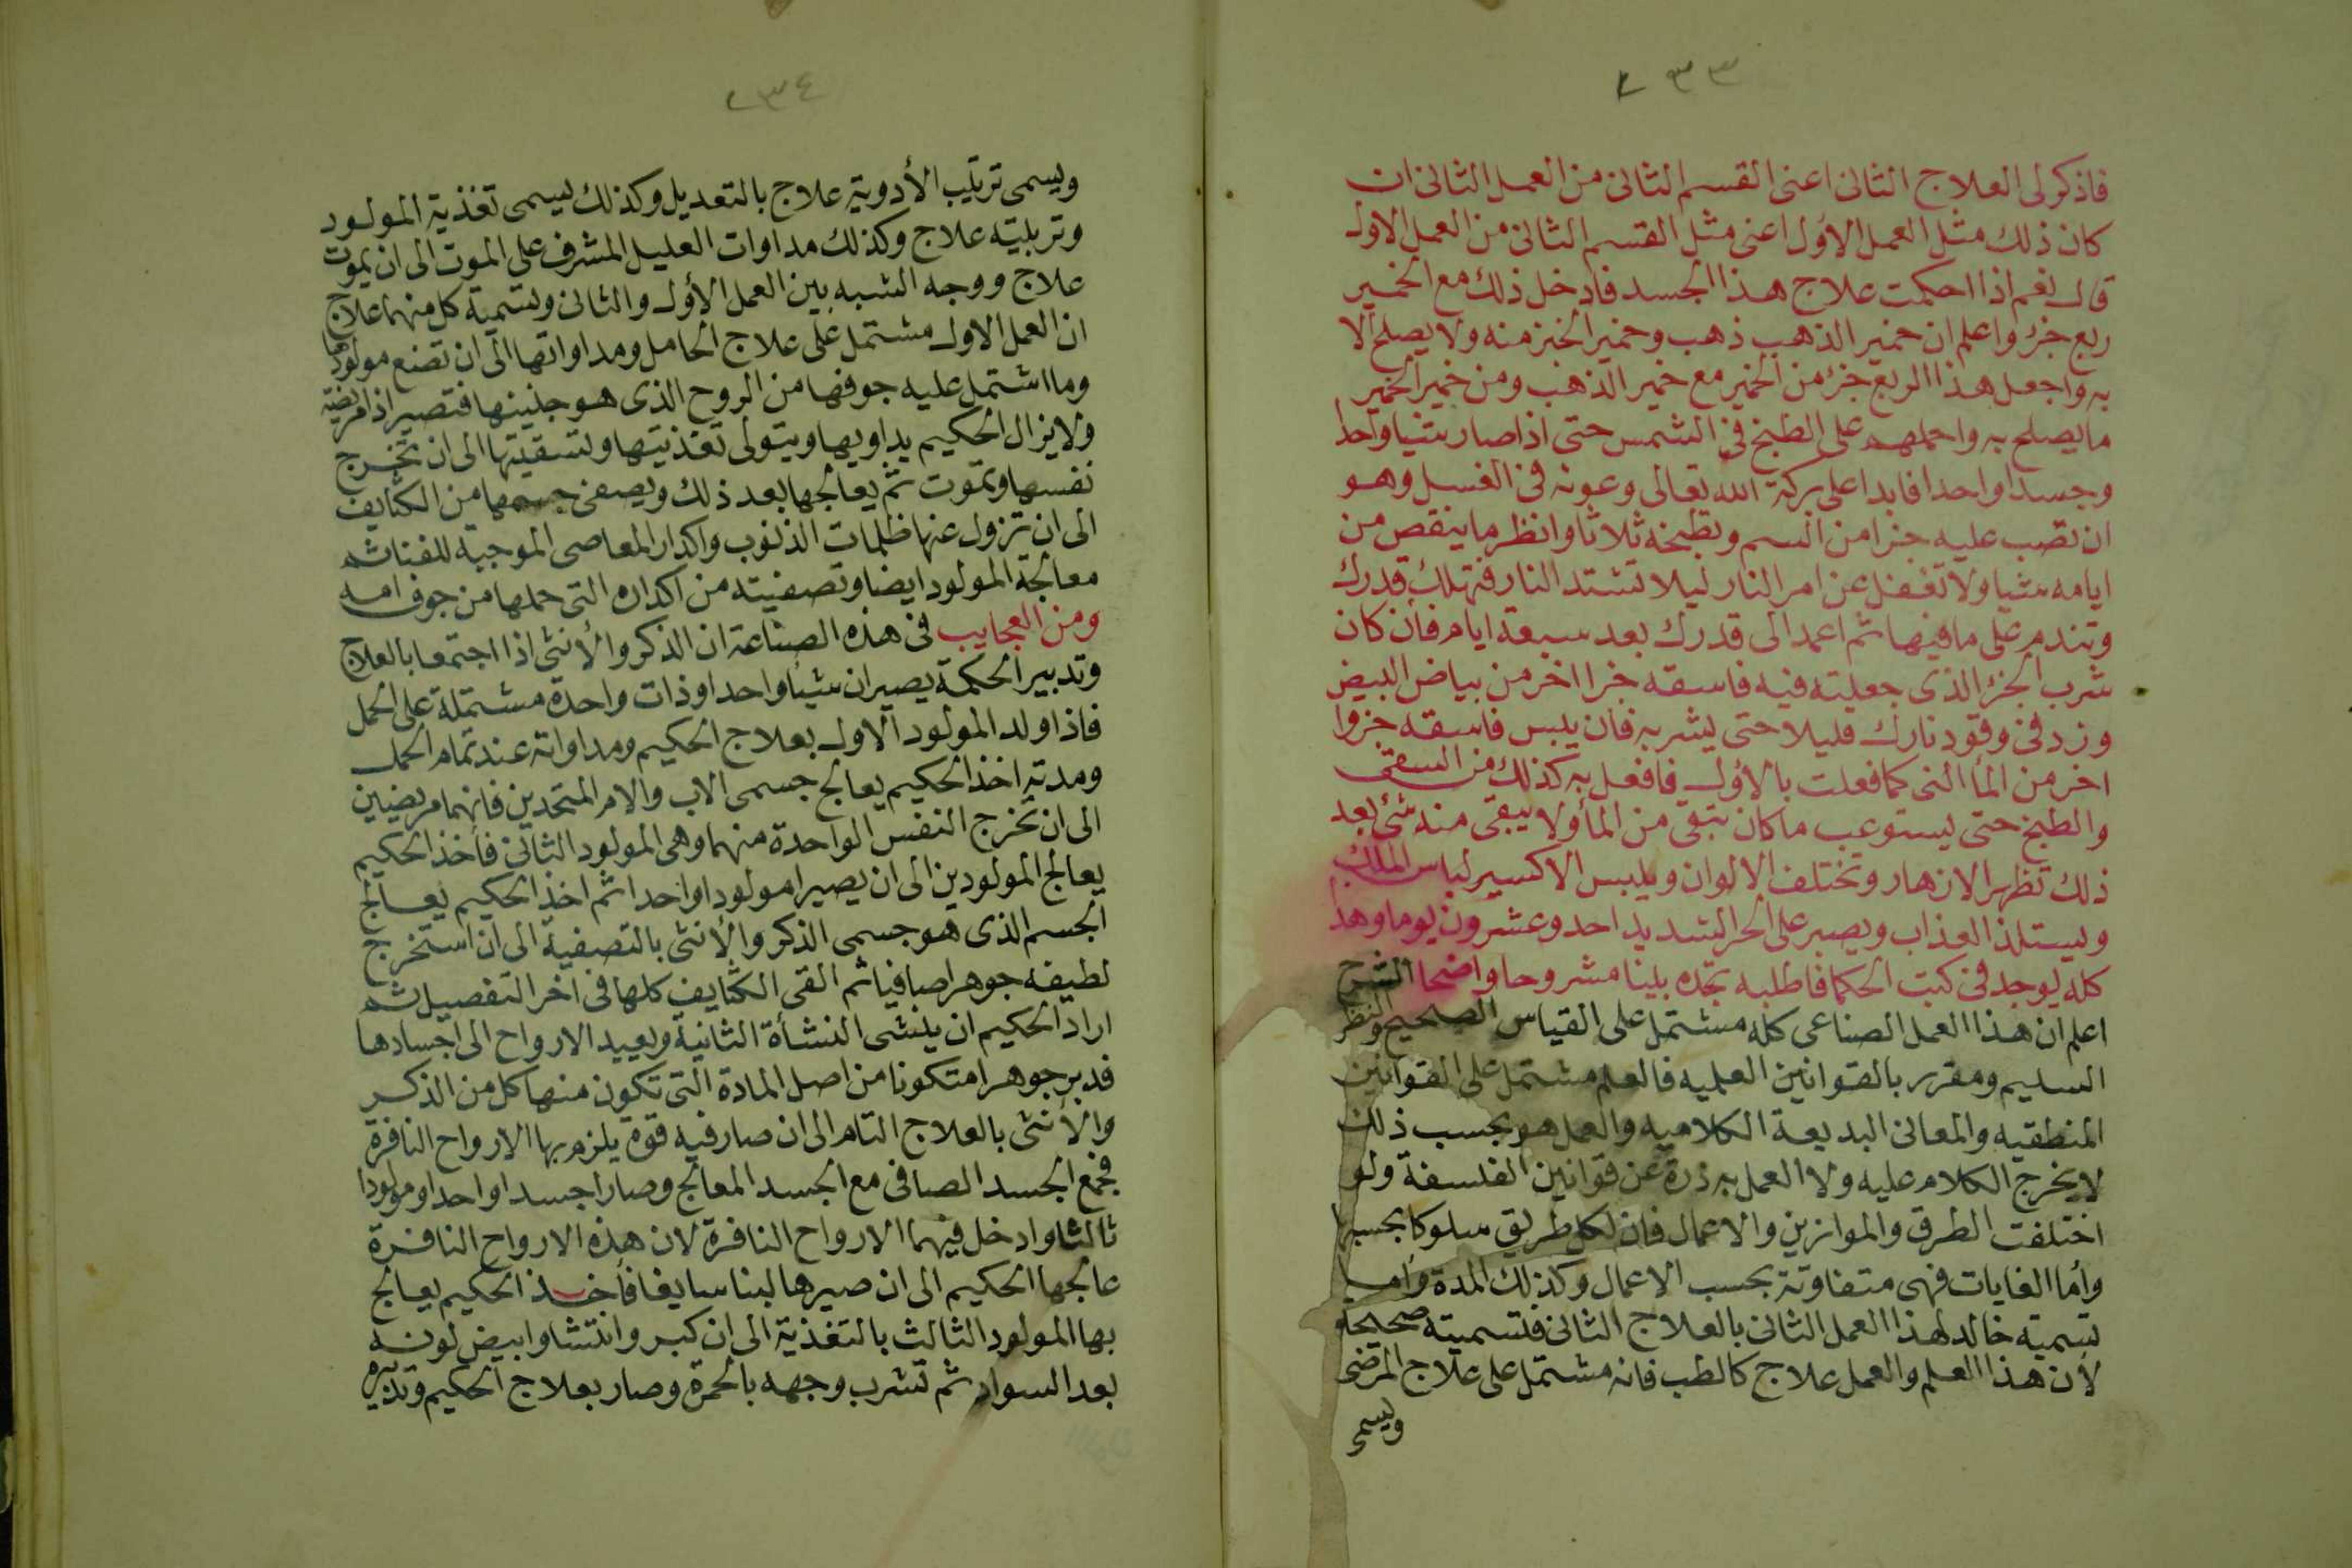 ٢٣٣
فاذكر لى العلاج الثانى اعنى القسم الثانى من العمل الثانى ان
كان ذلك مثل العمل الأول اعنى مثل القسم الثانى من العمل الاول
قال نعم اذا احكمت علاج هذا الجسد فادخل ذلك مع الخمير
ربع جزء واعلم ان خمير الذهب ذهب وخمير الخبز منه ولا يصلح الا
به واجعل هذا الربع جزء من الخمير مع خمير الذهب ومن خمير الخمير
ما يصلح به واحملهم على الطبخ فى الشمس حتى اذا صار شيا واحدا
وجسدا واحدا فابدا على بركة الله تعالى وعونه فى الغسل وهو
ان تصب عليه جزا من السم وتطبخه ثلاثا وانظر ما ينقص من
ايامه شيا ولا تغفل عن امر النار ليلا تشتد النار فتهلك قدرك
وتندم على ما فيها ثم اعمد الى قدرك بعد سبعة ايام فان كان
شرب الجزء الذى جعلته فيه فاسقه جزا اخر من بياض البيض
وزد فى وقود نارك قليلا حتى يشربه فان يبس فاسقه جزوا
اخر من الما النى كما فعلت بالأول فافعل به كذلك من السقى
والطبخ حتى يستوعب ما كان تبقى من المأ ولا يبقى منه شئ بعد
ذلك تظهر الازهار وتختلف الالوان ويلبس الاكسير لباس الملك
ويستلذ العذاب ويصبر على الحر الشديد احد وعشرون يوما وهذا
كله يوجد فى كتب الحكما فاطلبه تجده بينا مشروحا واضحا الشرح
اعلم ان هذا العمل الصناعى كله مشتمل على القياس الصحيح والنظر
السليم ومقرر بالقوانين العلميه فالعلم مشتمل على القوانين
المنطقيه والمعانى البديعة الكلاميه والعمل هو بحسب ذلك
لا يخرج الكلام عليه ولا العمل به ذرة عن قوانين الفلسفة ولو
اختلفت الطرق والموازين والاعمال فان لكل طريق سلوكا بحسبها
وأما الغايات فهى متفاوتة بحسب الاعمال وكذلك المدة وأما
تسمية خالد لهذا العمل الثانى بالعلاج الثانى فتسميته صحيحة
لأن هذا العلم والعمل علاج كالطب فانه مشتمل على علاج المرضى
ويسمى
٢٣٤
ويسمى ترتيب الأدوية علاج بالتعديل وكذلك يسمى تغذية المولود
وتربيته علاج وكذلك مداوات العليل المشرف على الموت الى ان يموت
علاج ووجه الشبه بين العمل الأول والثانى وتسمية كل منهما علاج
ان العمل الاول مشتمل على علاج الحامل ومداواتها الى ان تضع مولودها
وما اشتمل عليه جوفها من الروح الذى هو جنينها فتصير اذا مريضة
ولا يزال الحكيم يداويها ويتولى تغذيتها وتسقيتها الى ان تخرج
نفسها وتموت ثم يعالجها بعد ذلك ويصفى جسمها من الكثايف
الى ان تزول عنها ظلمات الذنوب واكدار المعاصى الموجبة للفنا ثم
معالجة المولود ايضا وتصفيته من اكداره التى حملها من جوف امه
ومن العجايب فى هذه الصناعة ان الذكر والأنثى اذا اجتمعا بالعلاج
وتدبير الحكمة يصيران شيأ واحدا وذات واحدة مشتملة على الحمل
فاذا ولد المولود الاول بعلاج الحكيم ومداواته عند تمام الحمل
ومدته اخذ الحكيم يعالج جسمى الاب والام المتحدين فانهما مريضين
الى ان تخرج النفس الواحدة منهما وهى المولود الثانى فأخذ الحكيم
يعالج المولودين الى ان يصيرا مولودا واحدا ثم اخذ الحكيم يعالج
الجسم الذى هو جسمى الذكر والأنثى بالتصفية الى ان استخرج
لطيفه جوهرا صافيا ثم القى الكثايف كلها فى اخر التفصيل ثم
اراد الحكيم ان ينشى النشأة الثانية ويعيد الارواح الى اجسادها
فدبر جوهرا متكونا من اصل المادة التى تكون منها كل من الذكر
والأنثى بالعلاج التام الى ان صار فيه قوة يلزم بها الارواح النافرة
فجمع الجسد الصافى مع الجسد المعالج وصارا جسدا واحدا ومولودا
ثالثا وادخل فيهما الارواح النافرة لان هذه الارواح النافرة
عالجها الحكيم الى ان صيرها لبنا سايغا فأخذ الحكيم يعالج
بها المولود الثالث بالتغذية الى ان كبر وانتشا وابيض لونه
بعد السواد ثم تشرب وجهه بالحمرة وصار بعلاج الحكيم وتدبيره